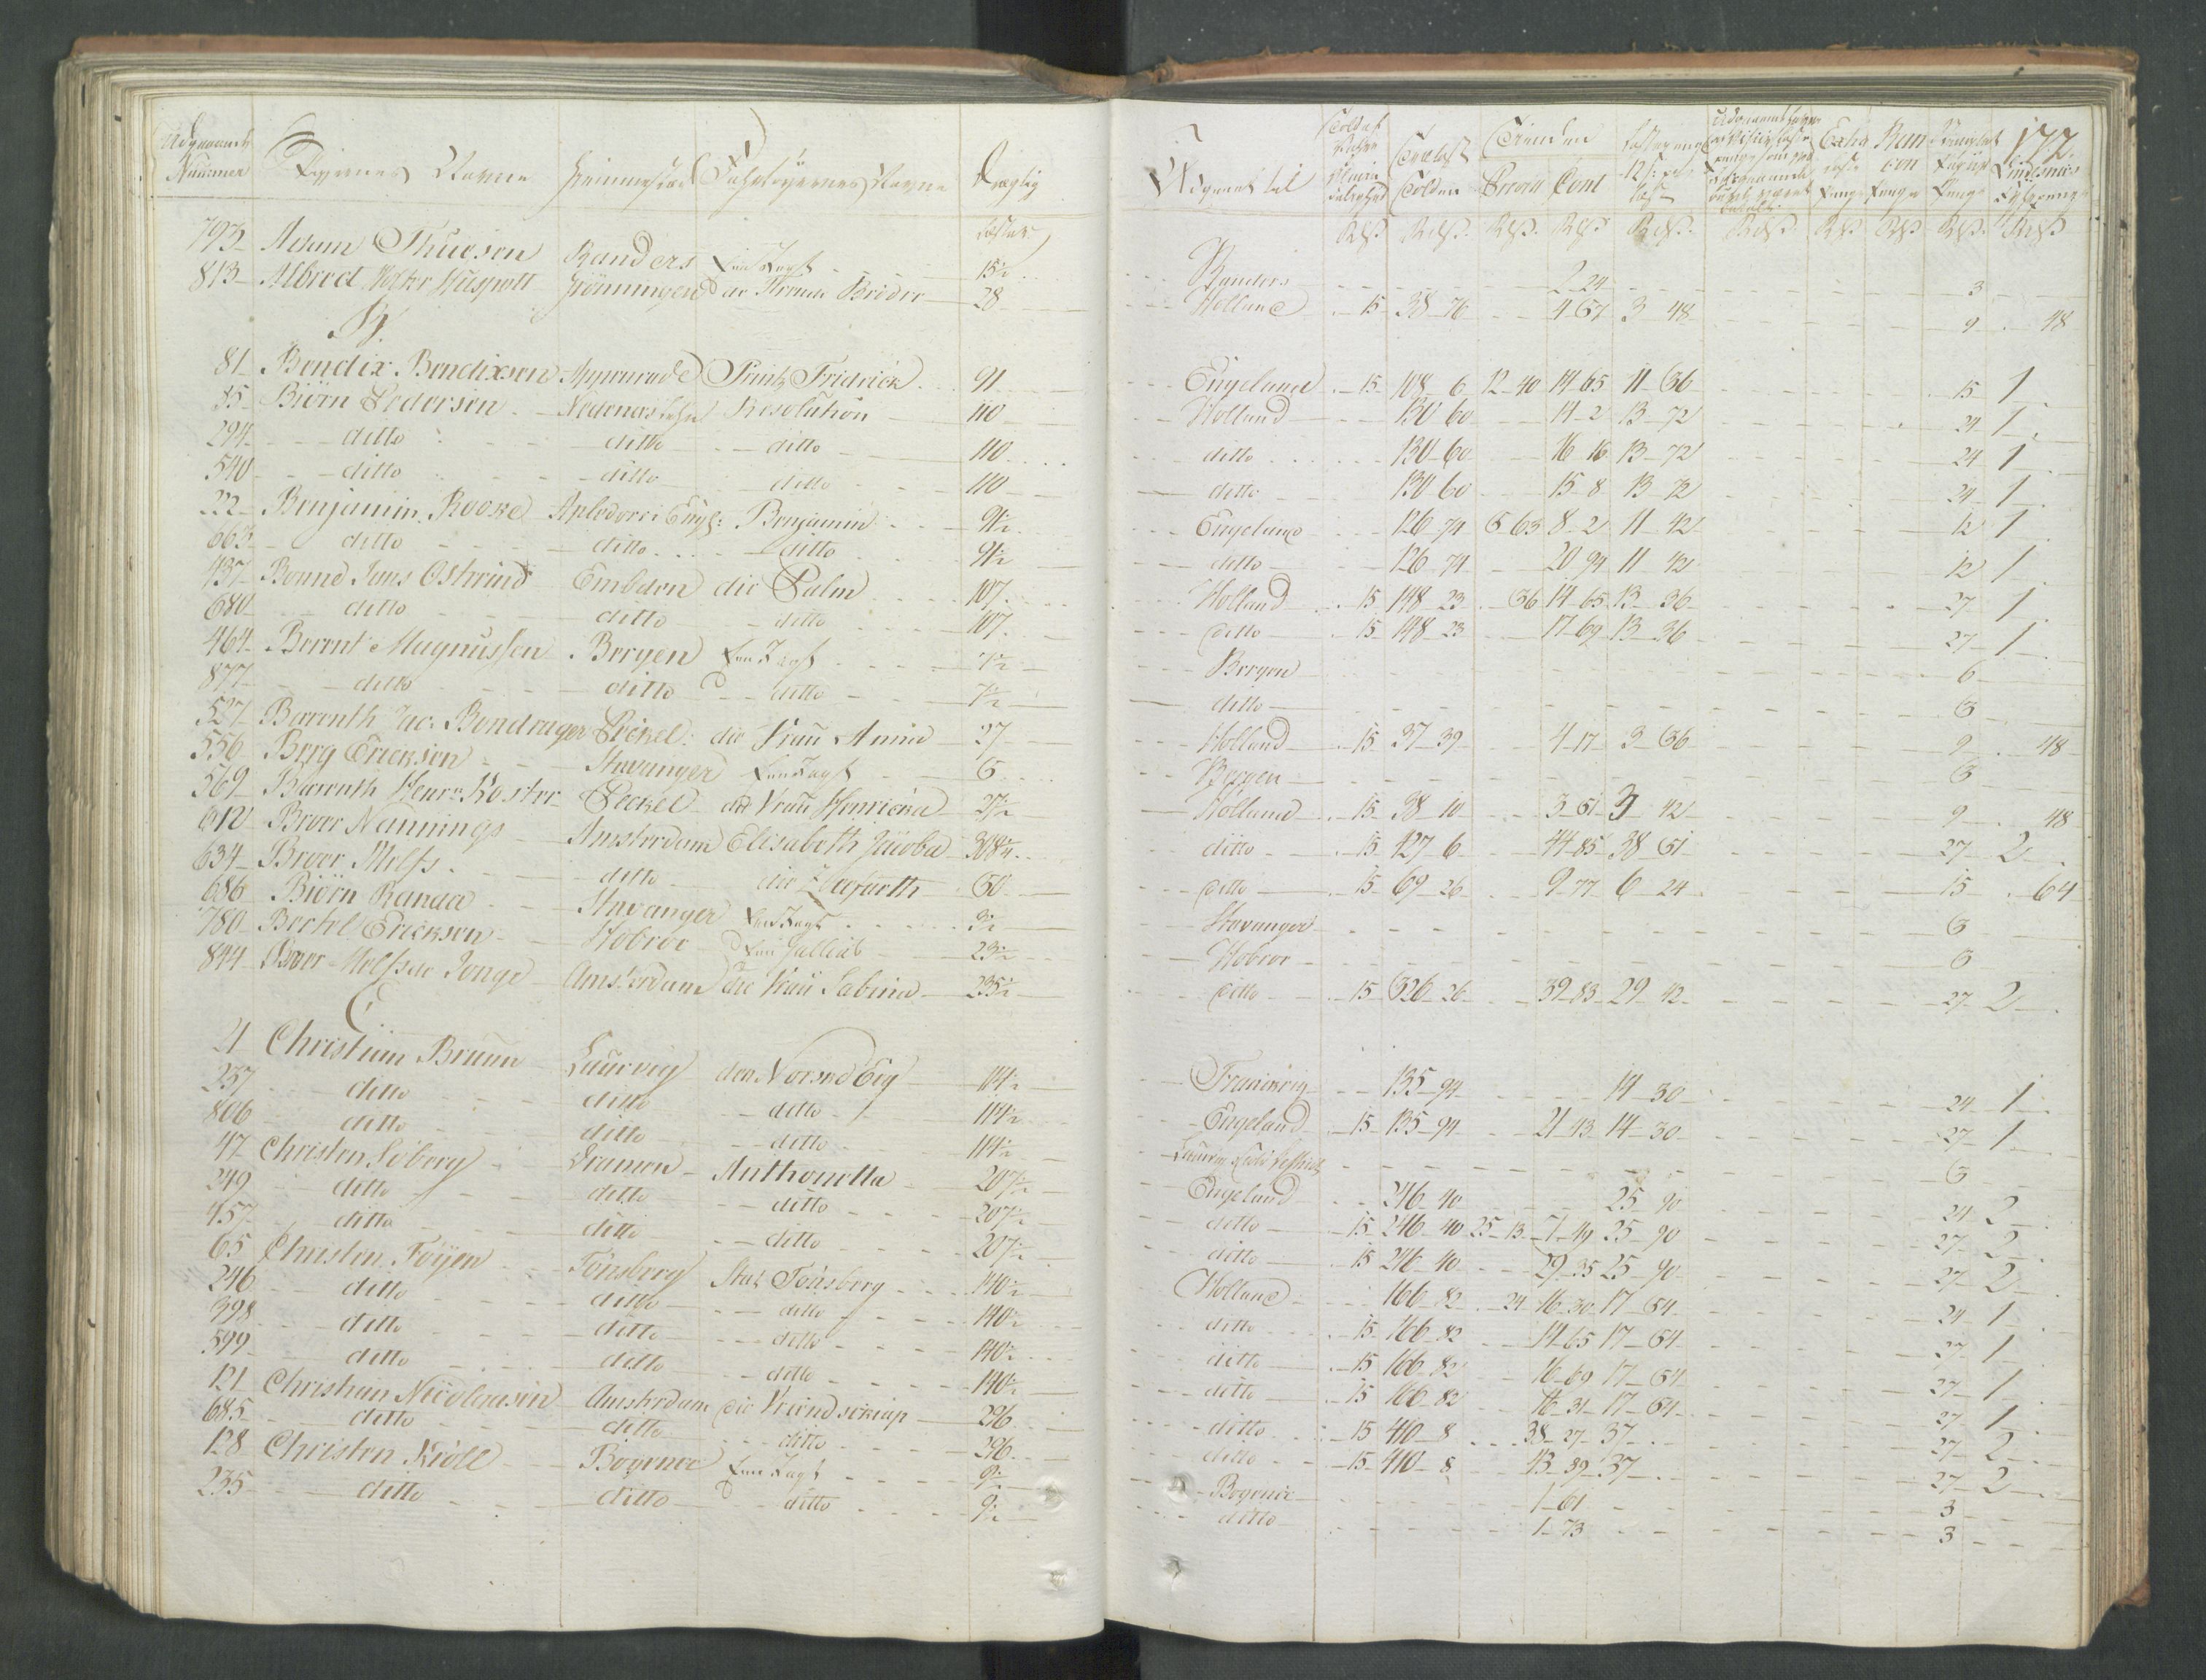 Udgaaende Nummer Navne Hiemmestæd Fahrtøyernes Navne Drægtig Læster
793 Adam Thuesen Randers Een Jagt 15½
813 Albred Husmett Grönningen de Fremde Brödre 28
B.
81 Bendix Bendixsen Appenrade Printz Fridrick 91
85 Biörn Pedersen Nedenæs Lehn Resolution 110
294 ditto ditto ditto 110
540 ditto ditto ditto 110
222 Benjamin Rooke Apledorei Engl: Benjamin 91½
663 ditto ditto ditto 91½
437 Bonne Jans Ostrind Embden die Palm 107
680 ditto ditto ditto 107
464 Berent Magnussen Bergen Een Jagt 7½
877 ditto ditto ditto 7½
527 Berenth Jac: Bendrager Peckel: die Frau Anna 27
556 Berg Ericksen Stavanger Een Jagt 6
569 Berenth Henr: Koster Peckel die Vrau Henricka 27½
612 Broer Nannings Amsterdam Elisabeth Jacoba 308¼
634 Broer Melfs ditto die Seefarth 50
686 Biörn Ranaa Stavanger Een Jagt 3½
780 Bertel Ericksen Hobroe Een Gallias 23½
844 Broer Melfs de Jonge Amsterdam die Vrau Sabina 235½
C
4 Christian Bruun Laurvig den Norske Eeg 114½
237 ditto ditto ditto 114½
806 ditto ditto ditto 114½
47 Christen Siöberg Dramen Anthonetta 207½
249 ditto ditto ditto 207½
457 ditto ditto ditto 207½
65 Christen Föyen Tönsberg Stat Tönsberg 140½
246 ditto ditto ditto 140½
398 ditto ditto ditto 140½
599 ditto ditto ditto 140½
121 Christian Nicolaisen Amsterdam die Vriendschap 296
685 ditto ditto ditto 296
128 Christen Kröll Bogense Een Jagt 9½
235 ditto ditto ditto 9½
172.
Udgaaet til Told af Told Last Tolden Extra
Randers 2 24 3
Holland 15 38 76 4 67 3 48 9 48
Engeland 15 108 6 12 40 14 65 11 36 15 1
Holland 130 60 14 2 13 72 24 1
ditto 130 60 16 16 13 72 24 1
ditto 130 60 15 8 13 72 24 1
Engeland 126 74 6 63 8 2 11 42 12 1
ditto 126 74 20 94 11 42 12 1
Holland 15 148 23 36 14 65 13 36 27 1
ditto 15 148 23 17 69 13 36 27 1
Bergen 6
ditto 6
Holland 15 37 39 4 17 3 36 9 48
Bergen 6
Holland 15 38 10 3 61 3 42 9 48
ditto 15 427 6 44 85 38 51 27 2
ditto 15 69 26 9 77 6 24 15 64
Stavanger 6
Hobroe 6
ditto 15 326 26 39 83 29 42 27 2
Frankrig 135 94 14 30 24 1
Engeland 15 135 94 21 43 14 30 27 1
Laurvig 6
Engeland 246 40 25 90 24 2
ditto 15 246 40 25 13 7 49 25 90 27 2
ditto 15 246 40 29 35 25 90 27 2
Holland 166 82 24 16 30 17 54 24 1
ditto 15 166 82 14 65 17 54 27 1
ditto 15 166 82 16 69 17 54 27 1
ditto 15 166 82 16 31 17 54 27 1
ditto 15 410 8 38 27 37 27 2
ditto 15 410 8 43 89 37 27 2
Bogense 1 61 3
ditto 1 73 3